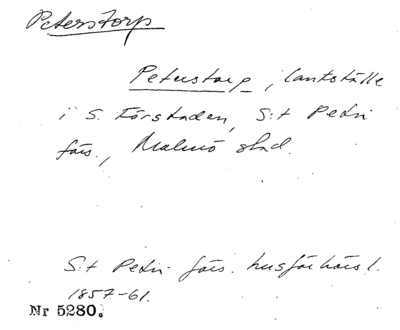 Peterstorp
Peterstorp, lantställe
i S. Förstaden, S:t Petri
förs., Malmö stad.
S:t Petri förs. husförhörsl.
1857-61.
Nr 5280.